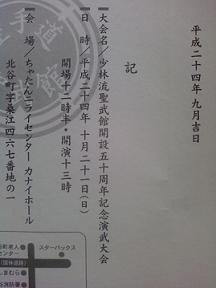 平成二十四年 九月吉日
記
大会名／少林流聖武館開設五十周年記念演武大会
日　時／平成二十四年 十月二十一日（日）
開場十二時半・開演十三時
会　場／ちゃたんニライセンター カナイホール
北谷町字桑江四六七番地の一
スターバックス